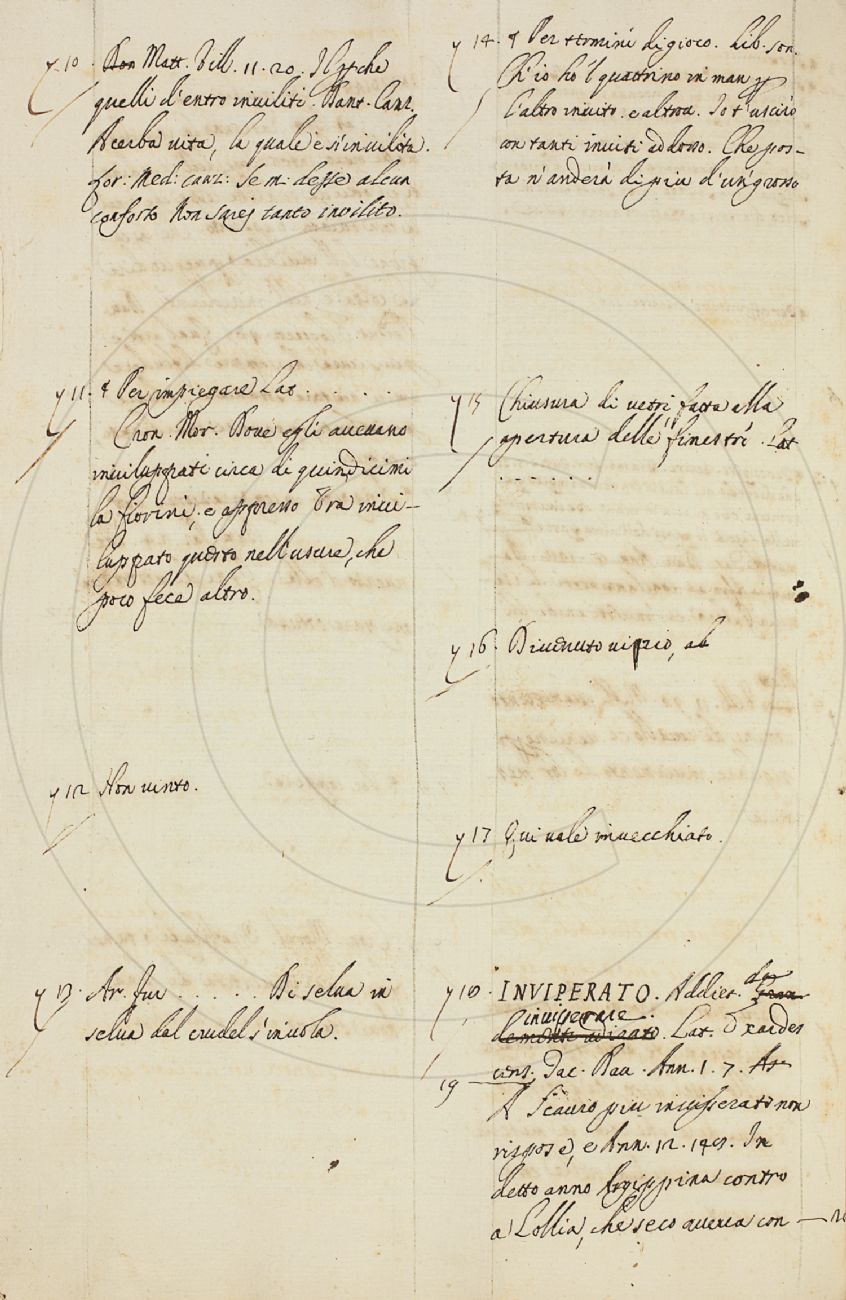 y 10. Non Matt. Vill. 11. 20. Il perche
quelli d'entro inviliti. Dant. Canz.
Acerba vita, la quale è sì invilita.
Lor: Med: canz: Se m: desse alcun
conforto Non sarej tanto invilito.
y 11. § Per impiegare Lat. . . . .
Cron. Mor. Dove egli avevano
inviluppati circa di quindicimi
la fiorini, e appresso Era invi-
luppato questo nell'usure, che
poco fece altro.
y 12 Non vinto.
y 13. Ar. Fur . . . . . Di selva in
selva dal crudel s'invola.
y 14. § Per termini di gioco. Lib. son.
Ch'io ho'l quattrino in man per
l'altro invito. e altrov. Io t'uscirò
con tanti inviti addosso. Che pos-
ta n'anderà di piu d'un grosso
y 15 Chiusura di vetri fatta alla
apertura delle finestre. Lat
. . . . . .
y 16. Divenuto vipio, al
y 17 Qui vale invecchiato.
y 18. INVIPERATO. Addiet. da
inviperare. Lat.
19 Tac. Dav. Ann. 1. 7. A
A Scauro piu inviperato non
rispose, e Ann. 12. 145. In
detto anno Agrippina contro
a Lollia, che seco aveva con — 20